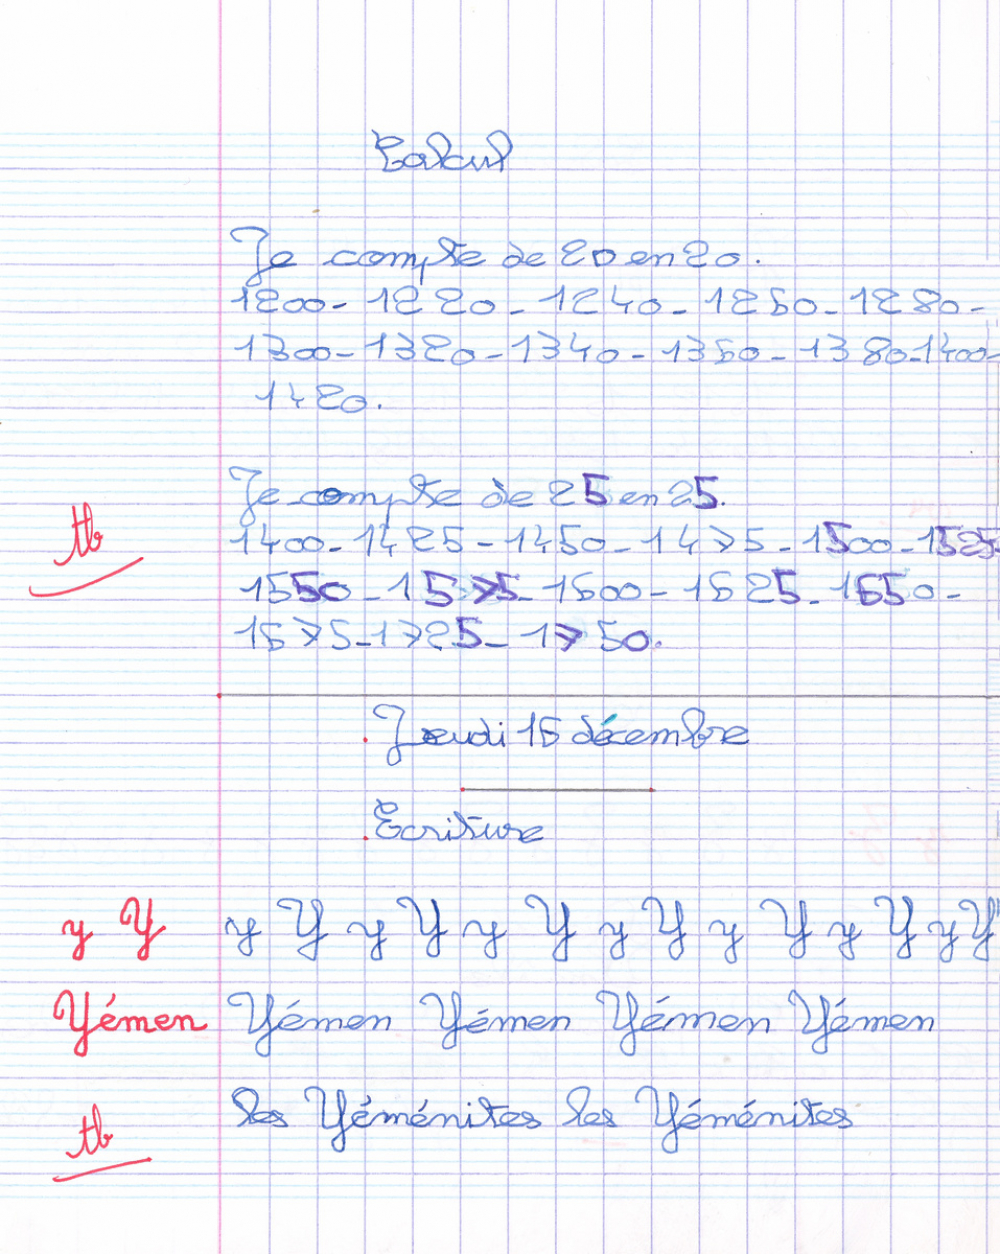 Calcul
Je compte de 20 en 20.
1200 - 1220 - 1240 - 1260 - 1280 -
1300 - 1320 - 1340 - 1360 - 1380 - 1400 -
1420.
Je compte de 25 en 25.
1400 - 1425 - 1450 - 1475 - 1500 - 1525 -
tb
1550 - 1575 - 1600 - 1625 - 1650 -
1675 - 1725 - 1750.
Jeudi 16 décembre
Ecriture
y Y y Y y Y y Y y Y y Y y Y y Y
Yémen Yémen Yémen Yémen Yémen
les Yéménites les Yéménites
tb